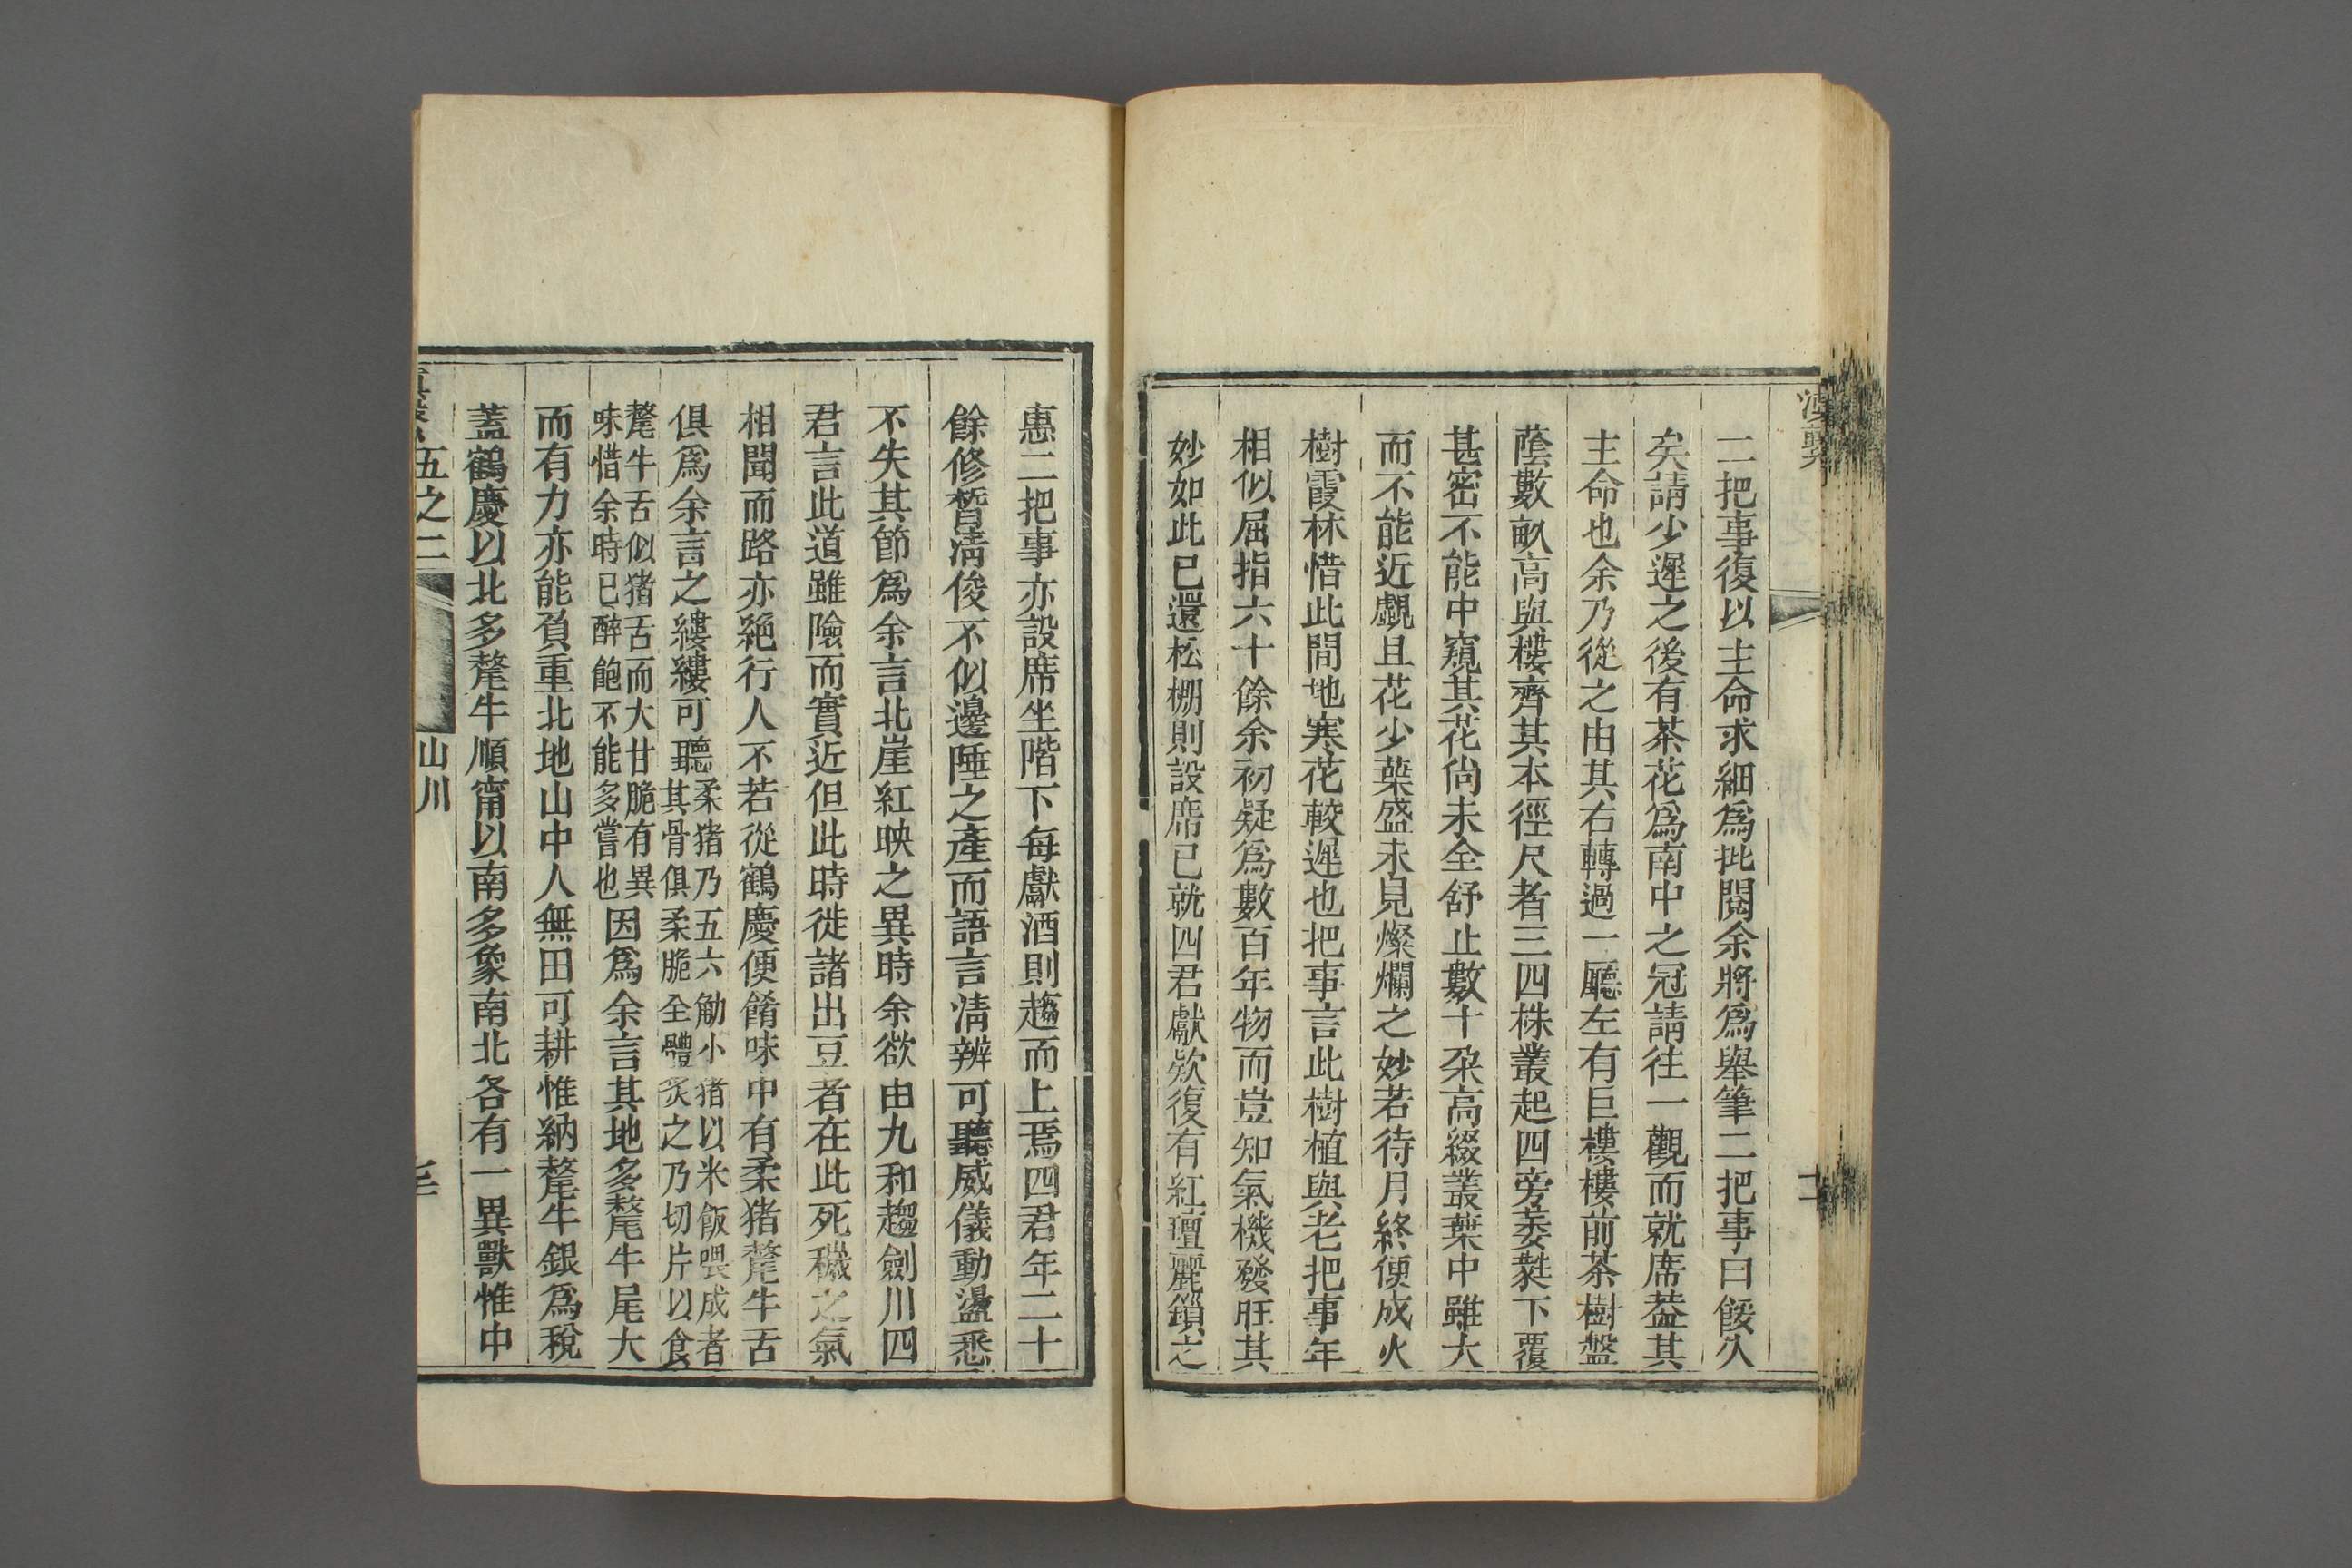 二把事復以主命求細爲批閱余將爲舉筆二把事曰餒久
矣請少遲之後有茶花爲南中之冠請往一觀而就席葢其
主命也余乃從之由其右轉過一廳左有巨樓樓前茶樹盤
蔭數畝高與樓齊其本徑尺者三四株叢起四旁萎蕤下覆
甚密不能中窺其花尙未全舒止數十朶高綴叢葉中雖大
而不能近覷且花少葉盛未見燦爛之妙若待月終便成火
樹霞林惜此間地寒花較遲也把事言此樹植與老把事年
相似屈指六十餘余初疑爲數百年物而豈知氣機發旺其
妙如此已還松棚則設席已就四君獻欵復有紅㲲麗鎖之
惠二把事亦設席坐階下每獻酒則趨而上焉四君年二十
餘修晳清俊不似邊陲之產而語言清辨可聽威儀動盪悉
不失其節爲余言北崖紅映之異時余欲由九和趨劍川四
君言此道雖險而實近但此時徙諸出豆者在此死穢之氣
相聞而路亦絕行人不若從鶴慶便餚味中有柔猪犛牛舌
俱爲余言之縷縷可聽柔猪乃五六觔小猪以米飯喂成者
其骨俱柔脆全體炙之乃切片以食
犛牛舌似猪舌而大甘脆有異
味惜余時已醉飽不能多嘗也因爲余言其地多犛牛尾大
而有力亦能負重北地山中人無田可耕惟納犛牛銀爲稅
蓋鶴慶以北多犛牛順甯以南多象南北各有一異獸惟中
五之二 山川